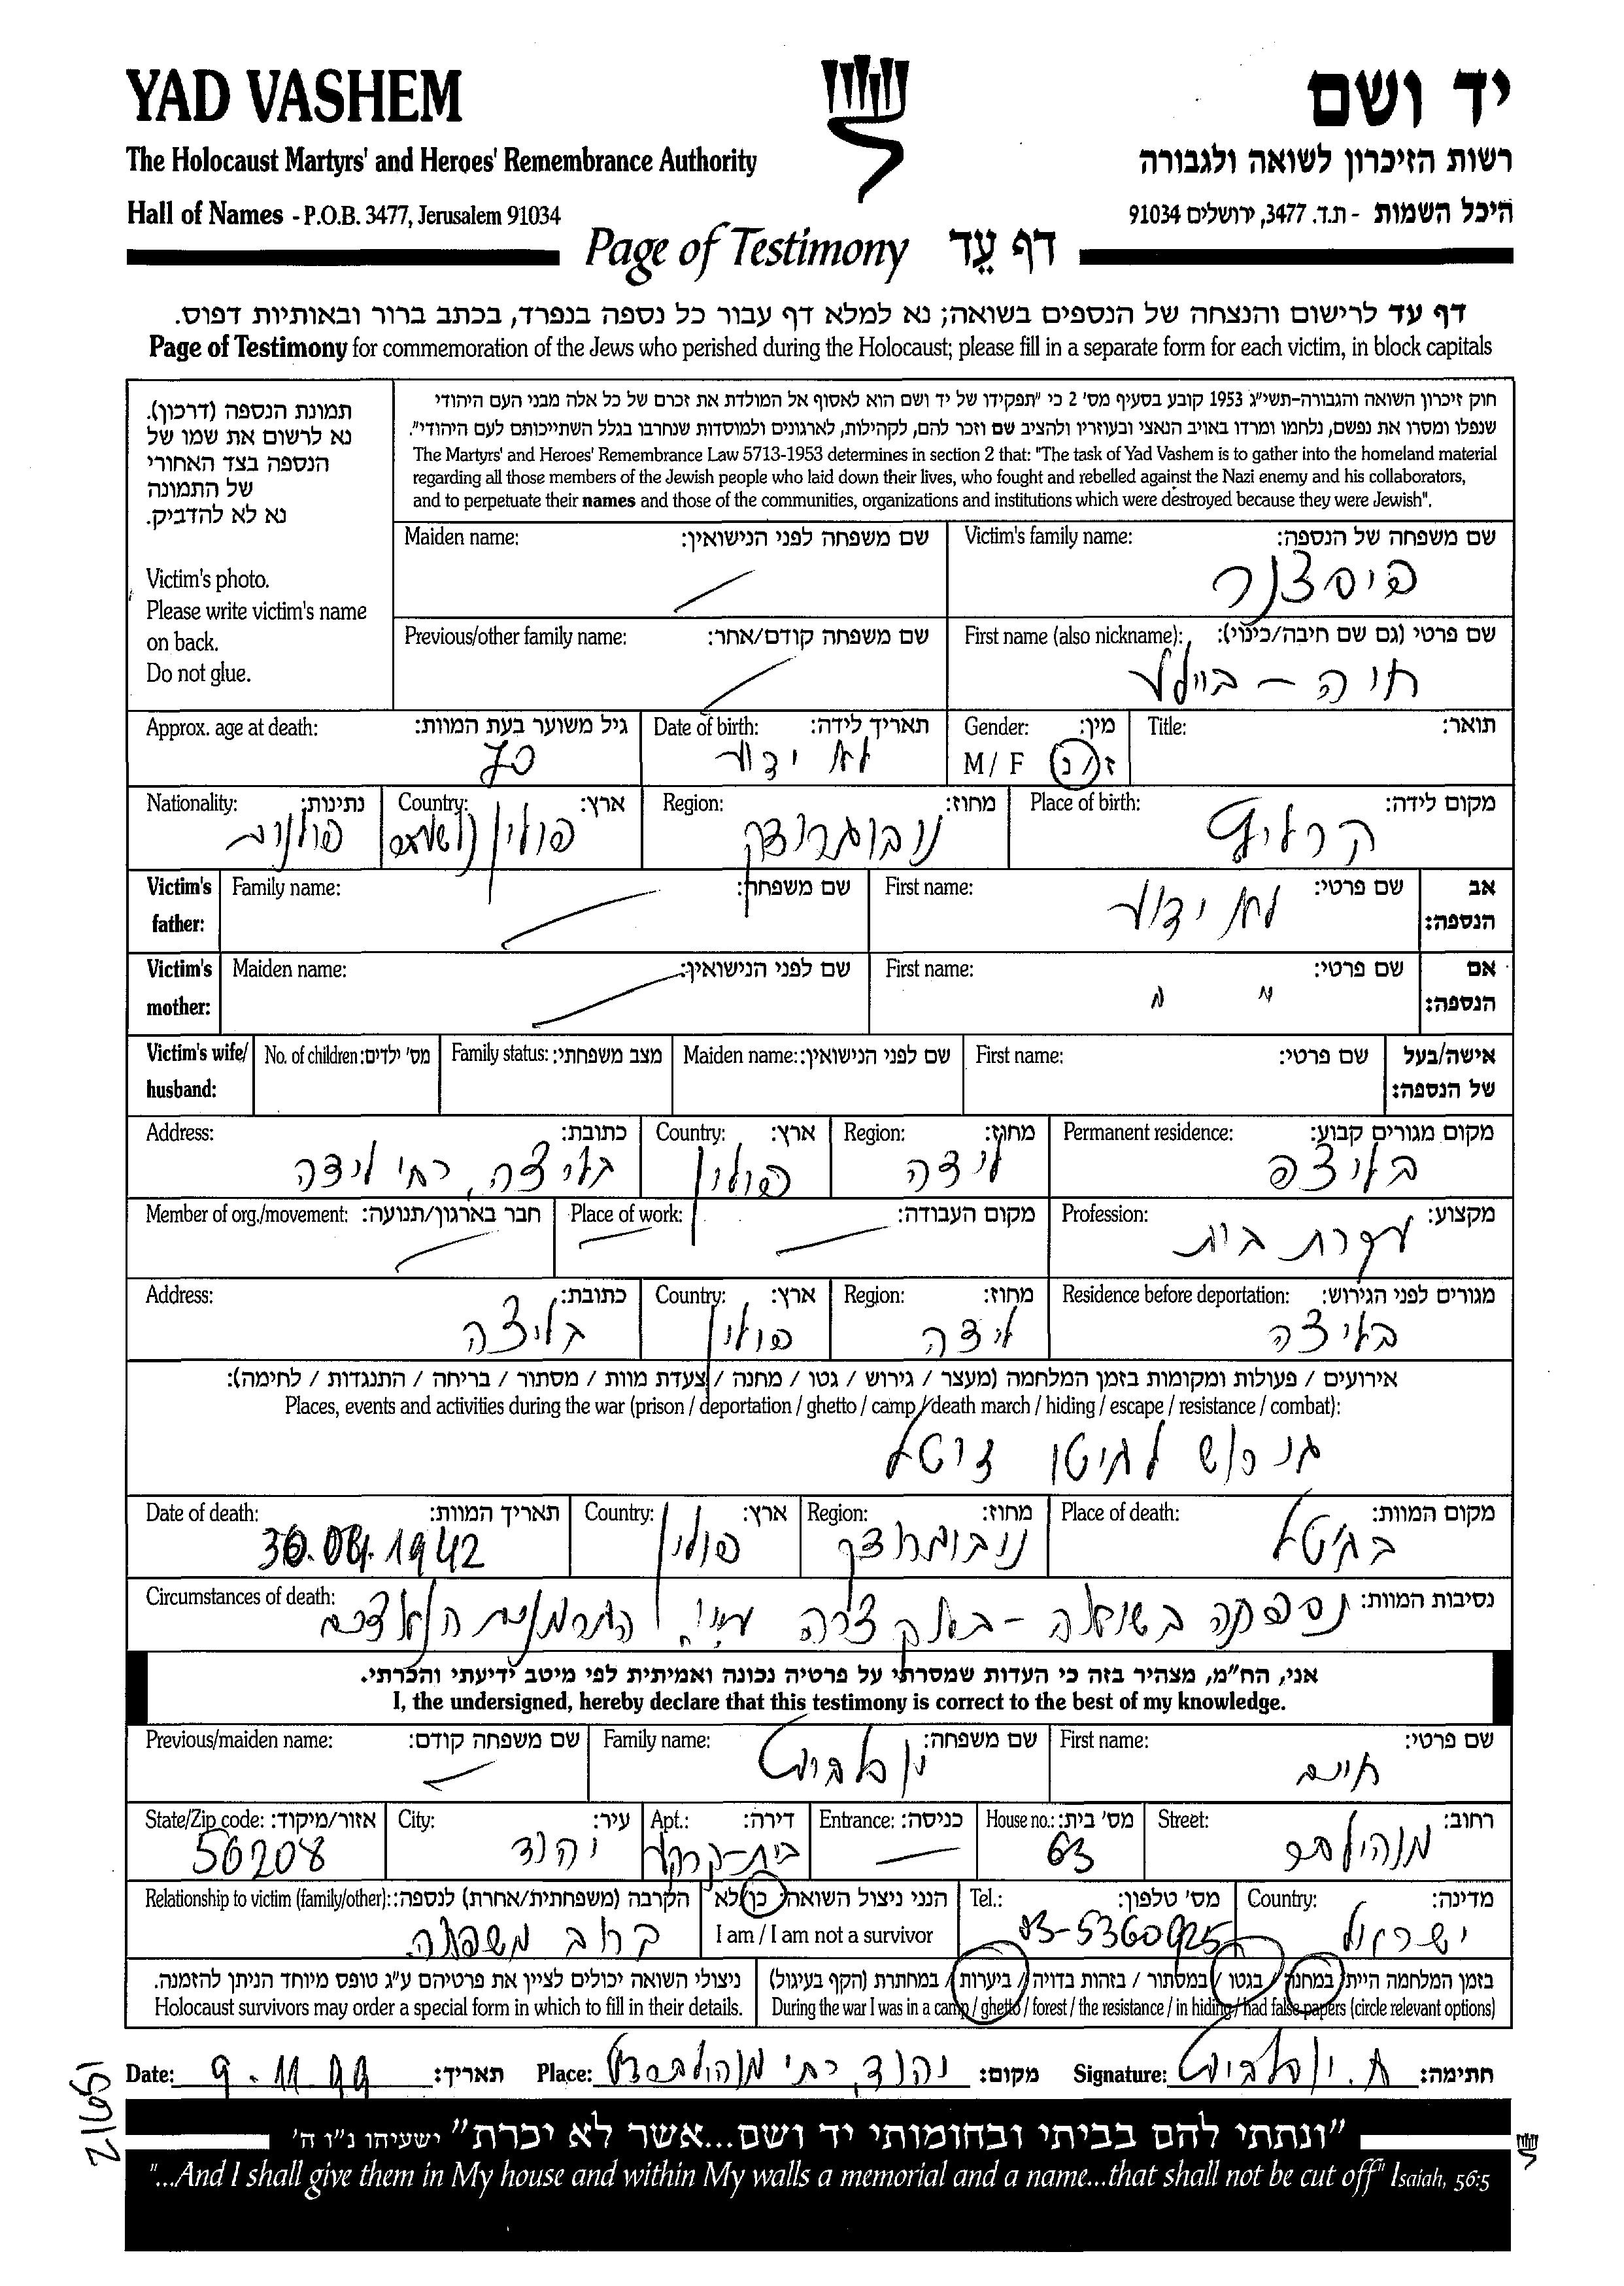 YAD VASHEM
יד ושם
The Holocaust Martyrs' and Heroes' Remembrance Authority
רשות הזיכרון לשואה ולגבורה
Hall of Names - P.O.B. 3477, Jerusalem 91034
היכל השמות - ת.ד. 3477, ירושלים 91034
Page of Testimony דף עֵד
דף עד לרישום והנצחה של הנספים בשואה; נא למלא דף עבור כל נספה בנפרד, בכתב ברור ובאותיות דפוס.
Page of Testimony for commemoration of the Jews who perished during the Holocaust; please fill in a separate form for each victim, in block capitals
תמונת הנספה (דרכון).
נא לרשום את שמו של
הנספה בצד האחורי
של התמונה
נא לא להדביק.
Victim's photo.
Please write victim's name
on back.
Do not glue.
חוק זיכרון השואה והגבורה-תשי"ג 1953 קובע בסעיף מס' 2 כי "תפקידו של יד ושם הוא לאסוף אל המולדת את זכרם של כל אלה מבני העם היהודי
שנפלו ומסרו את נפשם, נלחמו ומרדו באויב הנאצי ובעוזריו ולהציב שם וזכר להם, לקהילות, לארגונים ולמוסדות שנחרבו בגלל השתייכותם לעם היהודי".
The Martyrs' and Heroes' Remembrance Law 5713-1953 determines in section 2 that: "The task of Yad Vashem is to gather into the homeland material
regarding all those members of the Jewish people who laid down their lives, who fought and rebelled against the Nazi enemy and his collaborators,
and to perpetuate their names and those of the communities, organizations and institutions which were destroyed because they were Jewish".
Victim's family name: שם משפחה של הנספה:
Maiden name: שם משפחה לפני הנישואין:
First name (also nickname): שם פרטי (גם שם חיבה/כינוי):
חיה -
Previous/other family name: שם משפחה קודם/אחר:
Title: תואר:
Gender: מין:
M / F ז/נ
Date of birth: תאריך לידה:
לא ידוע
Approx. age at death: גיל משוער בעת המוות:
70
Place of birth: מקום לידה:
Region: מחוז:
נובוגרודק
Country: ארץ:
פולין
Nationality: נתינות:
פולנית
אב הנספה:
First name: שם פרטי:
לא ידוע
Family name: שם משפחה:
Victim's father:
אם הנספה:
First name: שם פרטי:
" "
Maiden name: שם לפני הנישואין:
Victim's mother:
אישה/בעל של הנספה:
First name: שם פרטי:
Maiden name: שם לפני הנישואין:
Family status: מצב משפחתי:
No. of children: מס' ילדים:
Victim's wife/ husband:
Permanent residence: מקום מגורים קבוע:
בליצה
Region: מחוז:
לידה
Country: ארץ:
פולין
Address: כתובת:
בליצה, לידה
Profession: מקצוע:
עקרת בית
Place of work: מקום העבודה:
Member of org./movement: חבר בארגון/תנועה:
Residence before deportation: מגורים לפני הגירוש:
בליצה
Region: מחוז:
לידה
Country: ארץ:
פולין
Address: כתובת:
בליצה
אירועים / פעולות ומקומות בזמן המלחמה (מעצר / גירוש / גטו / מחנה / צעדת מוות / מסתור / בריחה / התנגדות / לחימה):
Places, events and activities during the war (prison / deportation / ghetto / camp / death march / hiding / escape / resistance / combat):
גירוש לגיטו
Place of death: מקום המוות:
Region: מחוז:
נובוגרודק
Country: ארץ:
פולין
Date of death: תאריך המוות:
Circumstances of death: נסיבות המוות:
נספתה בשואה - באקציה ע"י הגרמנים הנאצים
אני, הח"מ, מצהיר בזה כי העדות שמסרתי על פרטיה נכונה ואמיתית לפי מיטב ידיעתי והכרתי.
I, the undersigned, hereby declare that this testimony is correct to the best of my knowledge.
First name: שם פרטי:
חיים
Family name: שם משפחה:
Previous/maiden name: שם משפחה קודם:
Street: רחוב:
House no.: מס' בית:
63
Entrance: כניסה:
Apt.: דירה:
בית-קרקע
City: עיר:
יהוד
State/Zip code: אזור/מיקוד:
56208
Country: מדינה:
ישראל
Tel.: מס' טלפון:
03-5360925
הנני ניצול השואה: כן/לא
I am / I am not a survivor
Relationship to victim (family/other): הקרבה (משפחתית/אחרת) לנספה:
קרוב משפחה.
בזמן המלחמה הייתי במחנה / בגטו / במסתור / בזהות בדויה / ביערות / במחתרת (הקף בעיגול)
During the war I was in a camp / ghetto / forest / the resistance / in hiding / had false papers (circle relevant options)
ניצולי השואה יכולים לציין את פרטיהם ע"ג טופס מיוחד הניתן להזמנה.
Holocaust survivors may order a special form in which to fill in their details.
Date: 9.11.99 תאריך:
Place: יהוד, מקום:
Signature: חתימה:
"ונתתי להם בביתי ובחומותי יד ושם...אשר לא יכרת" ישעיהו נ"ו ה'
"...And I shall give them in My house and within My walls a memorial and a name...that shall not be cut off" Isaiah, 56:5